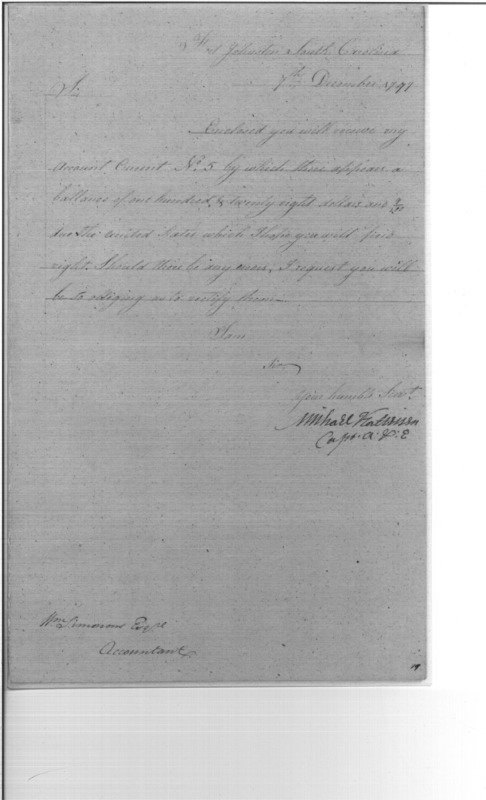 Fort Johnston South Carolina
7th December 1797
Sir
Enclosed you will receive my
Account Current No 5 by which there appears a
ballance of one hundred & twenty eight dollars and
due the United States which I hope you will find
right. Should there be any errors, I request you will
be so obliging as to rectify them
I am
Sir
Your humble Servt
Michael Kalteisen
Capt. A: & E
Wm Simmons Esqr
Accountant